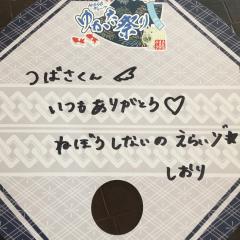 ゆかた祭り
つばさくん
いつもありがとう♡
ねぼうしないの えらいゾ★
しおり